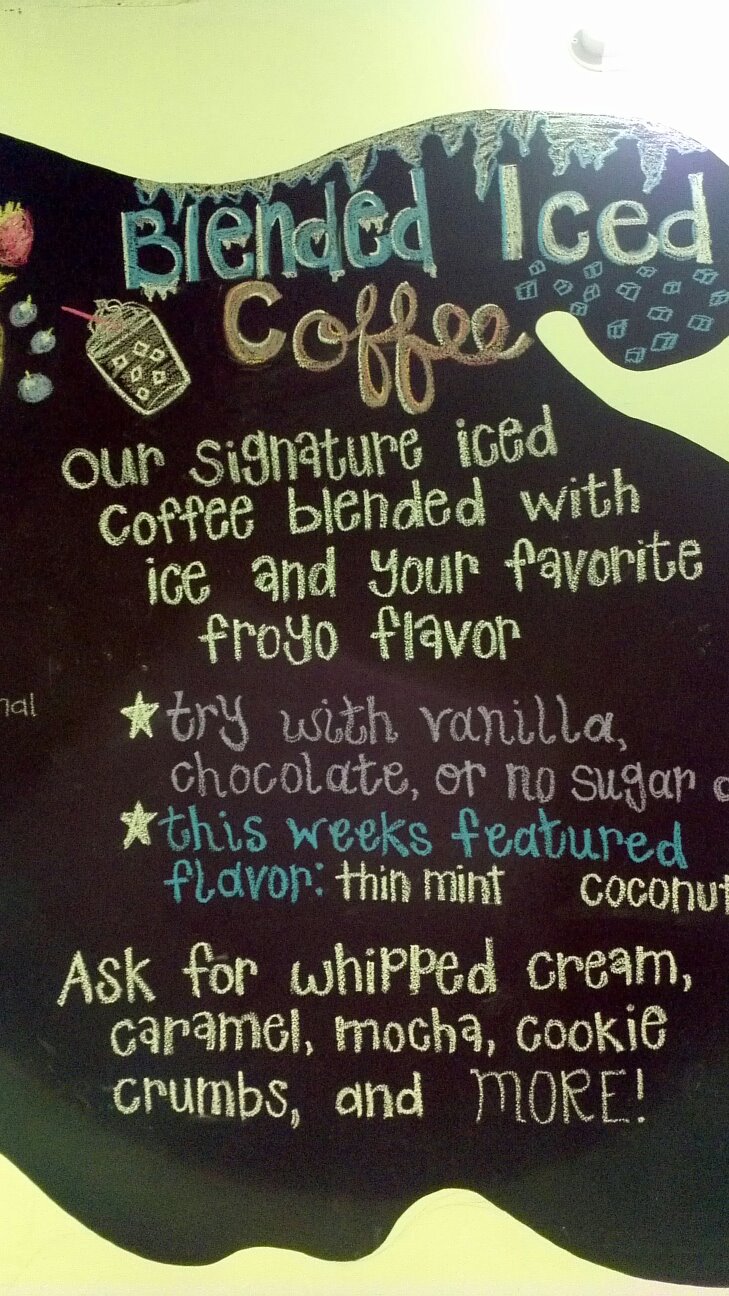 Blended Iced
Coffee
our signature iced
coffee blended with
ice and your favorite
froyo flavor
try with vanilla,
chocolate, or no sugar
this weeks featured
flavor: thin mint coconut
Ask for whipped cream,
caramel, mocha, cookie
crumbs, and MORE!